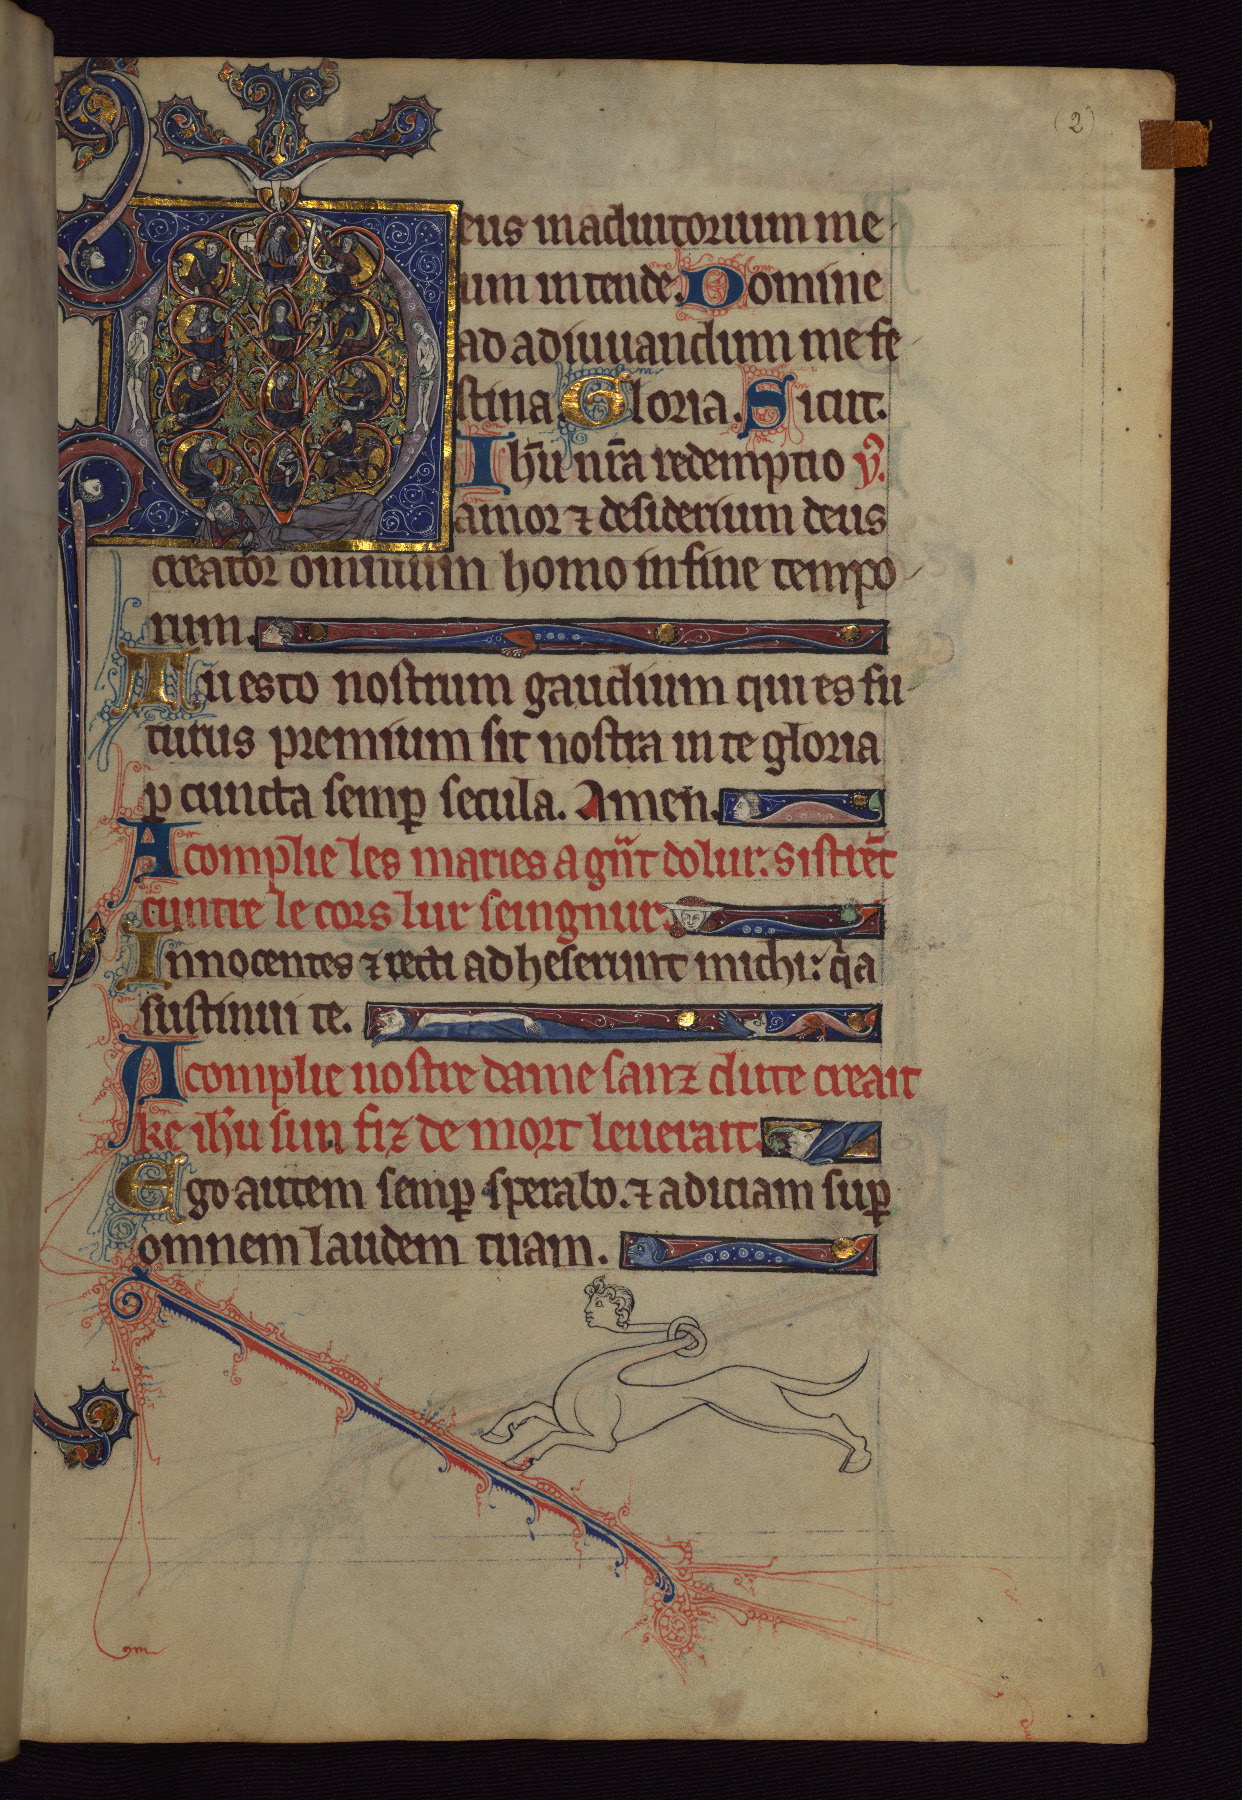 (2)
Deus in adiutorium me
um intende. Domine
ad adiuuandum me fe
stina. Gloria. Sicut.
Ihu nra redemptio ẏ.
amor ⁊ desiderium deus
creator omnium homo in fine tempo
rum.
Tu esto nostrum gaudium qui es fu
turus premium sit nostra in te gloria
p cuncta semp secula. Amen.
A complie les maries a gnt dolur. Sistret
cuntre le cors lur seingnur.
Innocentes ⁊ recti adheserunt michi: qa
sustinui te.
A complie nostre dame sanz dute creait
ke ihu sun fiz de mort leuerait.
Ego autem semp sperabo. ⁊ adiciam sup
omnem laudem tuam.